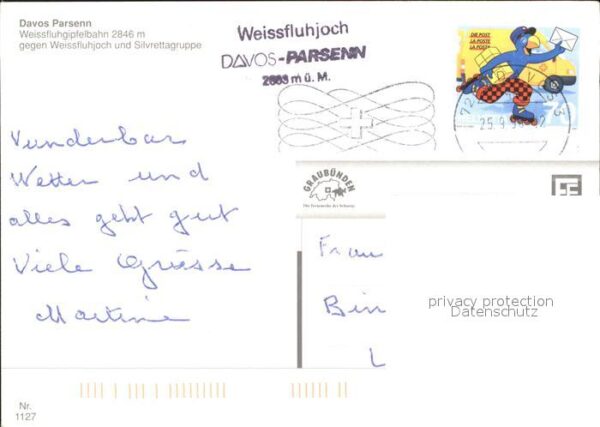 Davos Parsenn
Weissfluhgipfelbahn 2846 m
gegen Weissfluhjoch und Silvrettagruppe
Weissfluhjoch
DAVOS-PARSENN
2663 m ü. M.
DIE POST
LA POSTE
LA POSTA
25.9.99
GRAUBÜNDEN
Die Ferienecke der Schweiz
Wunderbar
Wetter und
alles geht gut
Viele Grüsse
Martine
Frau
Bin
L
privacy protection
Datenschutz
Nr.
1127